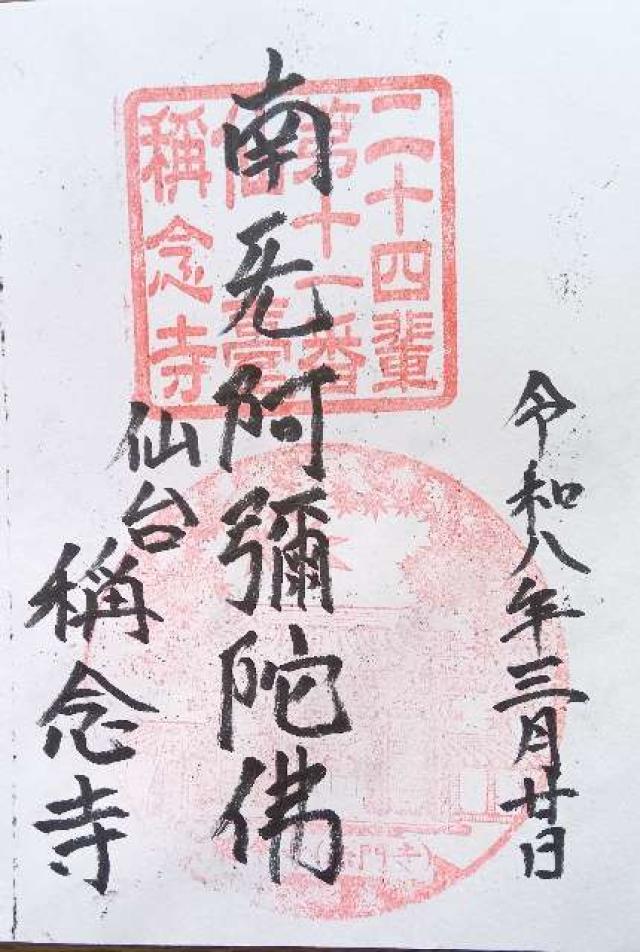 令和八年三月廿日
南无阿彌陀佛
仙台
稱念寺
二十四輩
第十一番
仙臺
稱念寺